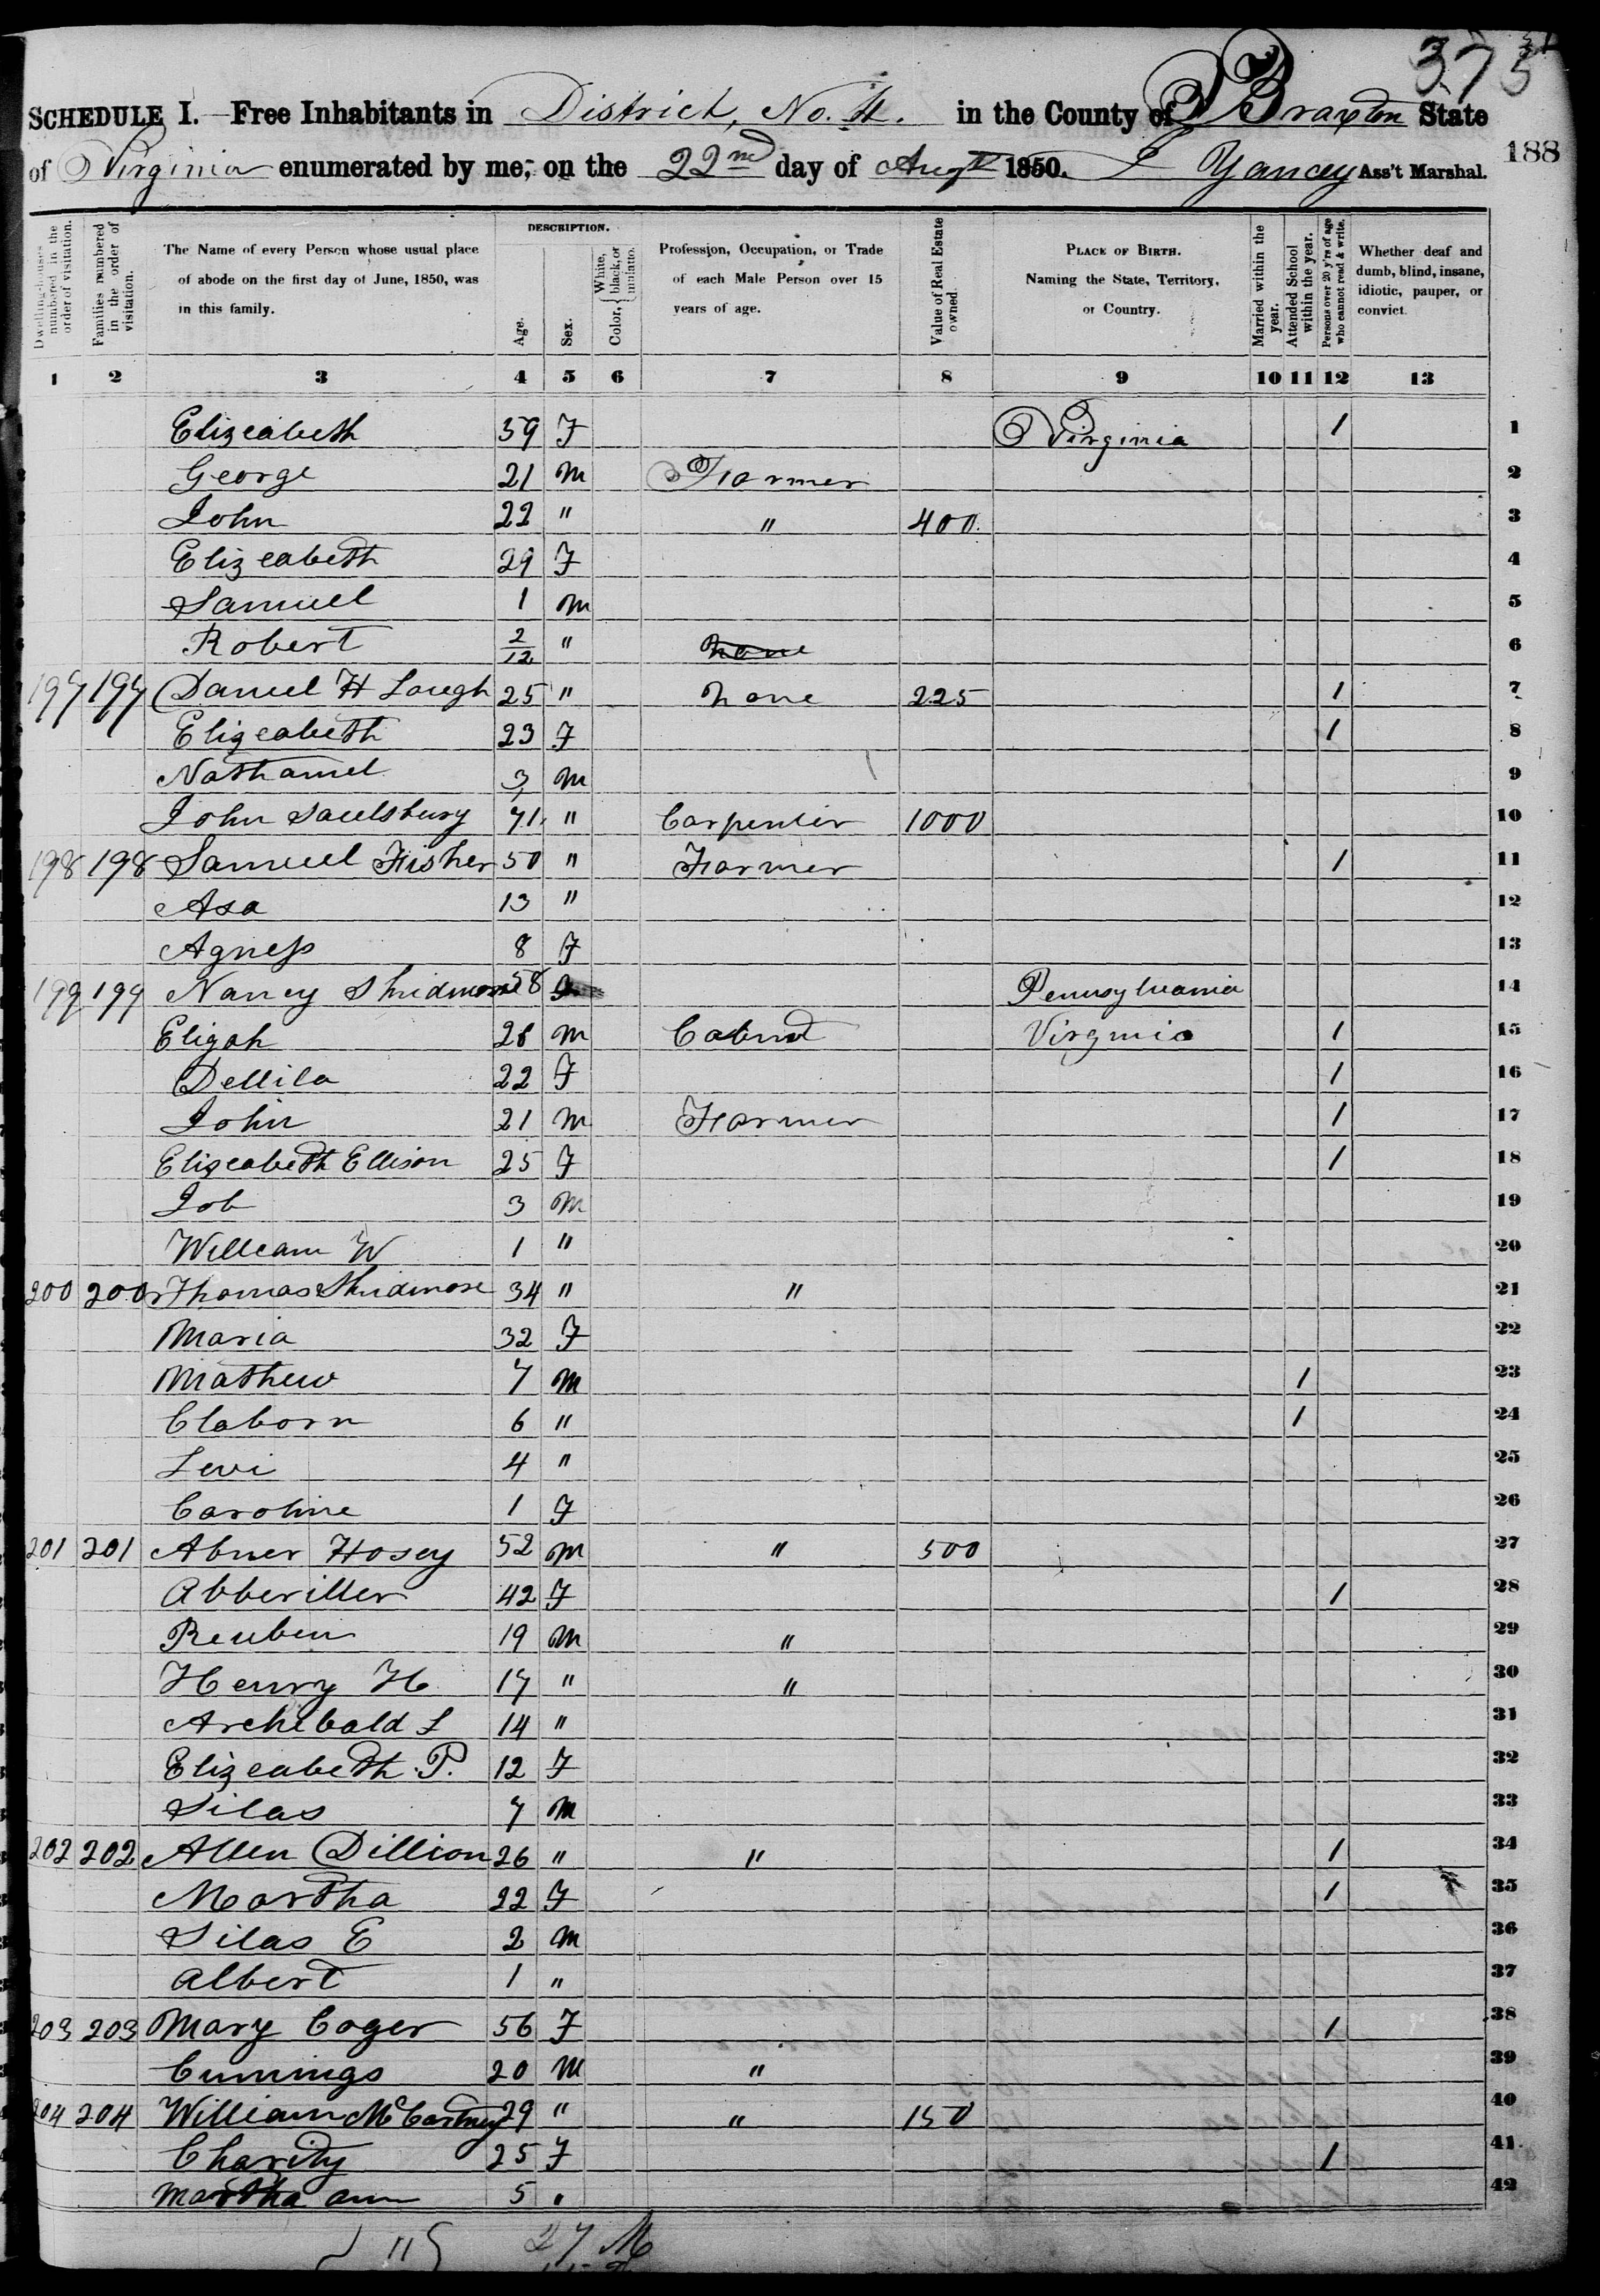 375
SCHEDULE I. Free Inhabitants in District, No. 4. in the County of Braxton State
of Virginia enumerated by me, on the 22nd day of Augt 1850. L Yancey Ass't Marshal.
188
Dwelling-houses numbered in the order of visitation.
Families numbered in the order of visitation.
The Name of every Person whose usual place of abode on the first day of June, 1850, was in this family.
DESCRIPTION.
Age.
Sex.
Color, White, black, or mulatto.
Profession, Occupation, or Trade of each Male Person over 15 years of age.
Value of Real Estate owned.
PLACE OF BIRTH. Naming the State, Territory, or Country.
Married within the year.
Attended School within the year.
Persons over 20 y'rs of age who cannot read & write.
Whether deaf and dumb, blind, insane, idiotic, pauper, or convict.
1 2 3 4 5 6 7 8 9 10 11 12 13
Elizeabeth 59 F Virginia 1 1
George 21 M Farmer 2
John 22 " " 400. 3
Elizeabeth 29 F 4
Samuel 1 M 5
Robert 2/12 " none 6
197 197 Daniel H Lough 25 " none 225 1 7
Elizeabeth 23 F 1 8
Nathaniel 3 M 9
John Saulsbury 71 " Carpenter 1000 10
198 198 Samuel Fisher 50 " Farmer 1 11
Asa 13 " 12
Agness 8 F 13
199 199 Nancy Skidmore 58 F Pennsylvania 14
Eligah 28 M Virginia 1 15
Dellila 22 F 1 16
John 21 M Farmer 1 17
Elizeabeth Ellison 25 F 1 18
Job 3 M 19
William W 1 " 20
200 200 Thomas Skidmore 34 " " 21
Maria 32 F 22
Mathew 7 M 1 23
Claborn 6 " 1 24
Levi 4 " 25
Caroline 1 F 26
201 201 Abner Hosey 52 M " 500 27
Abberiller 42 F 1 28
Reuben 19 M " 29
Henry H 17 " " 30
Archibald L 14 " 31
Elizeabeth P. 12 F 32
Silas 7 M 33
202 202 Allen Dillion 26 " " 1 34
Martha 22 F 1 35
Silas E 2 M 36
Albert 1 " 37
203 203 Mary Coger 56 F 1 38
Cunnings 20 M " 39
204 204 William McCartney 29 " " 150 40
Charity 25 F 1 41
Martha ann 5 " 42
27 M